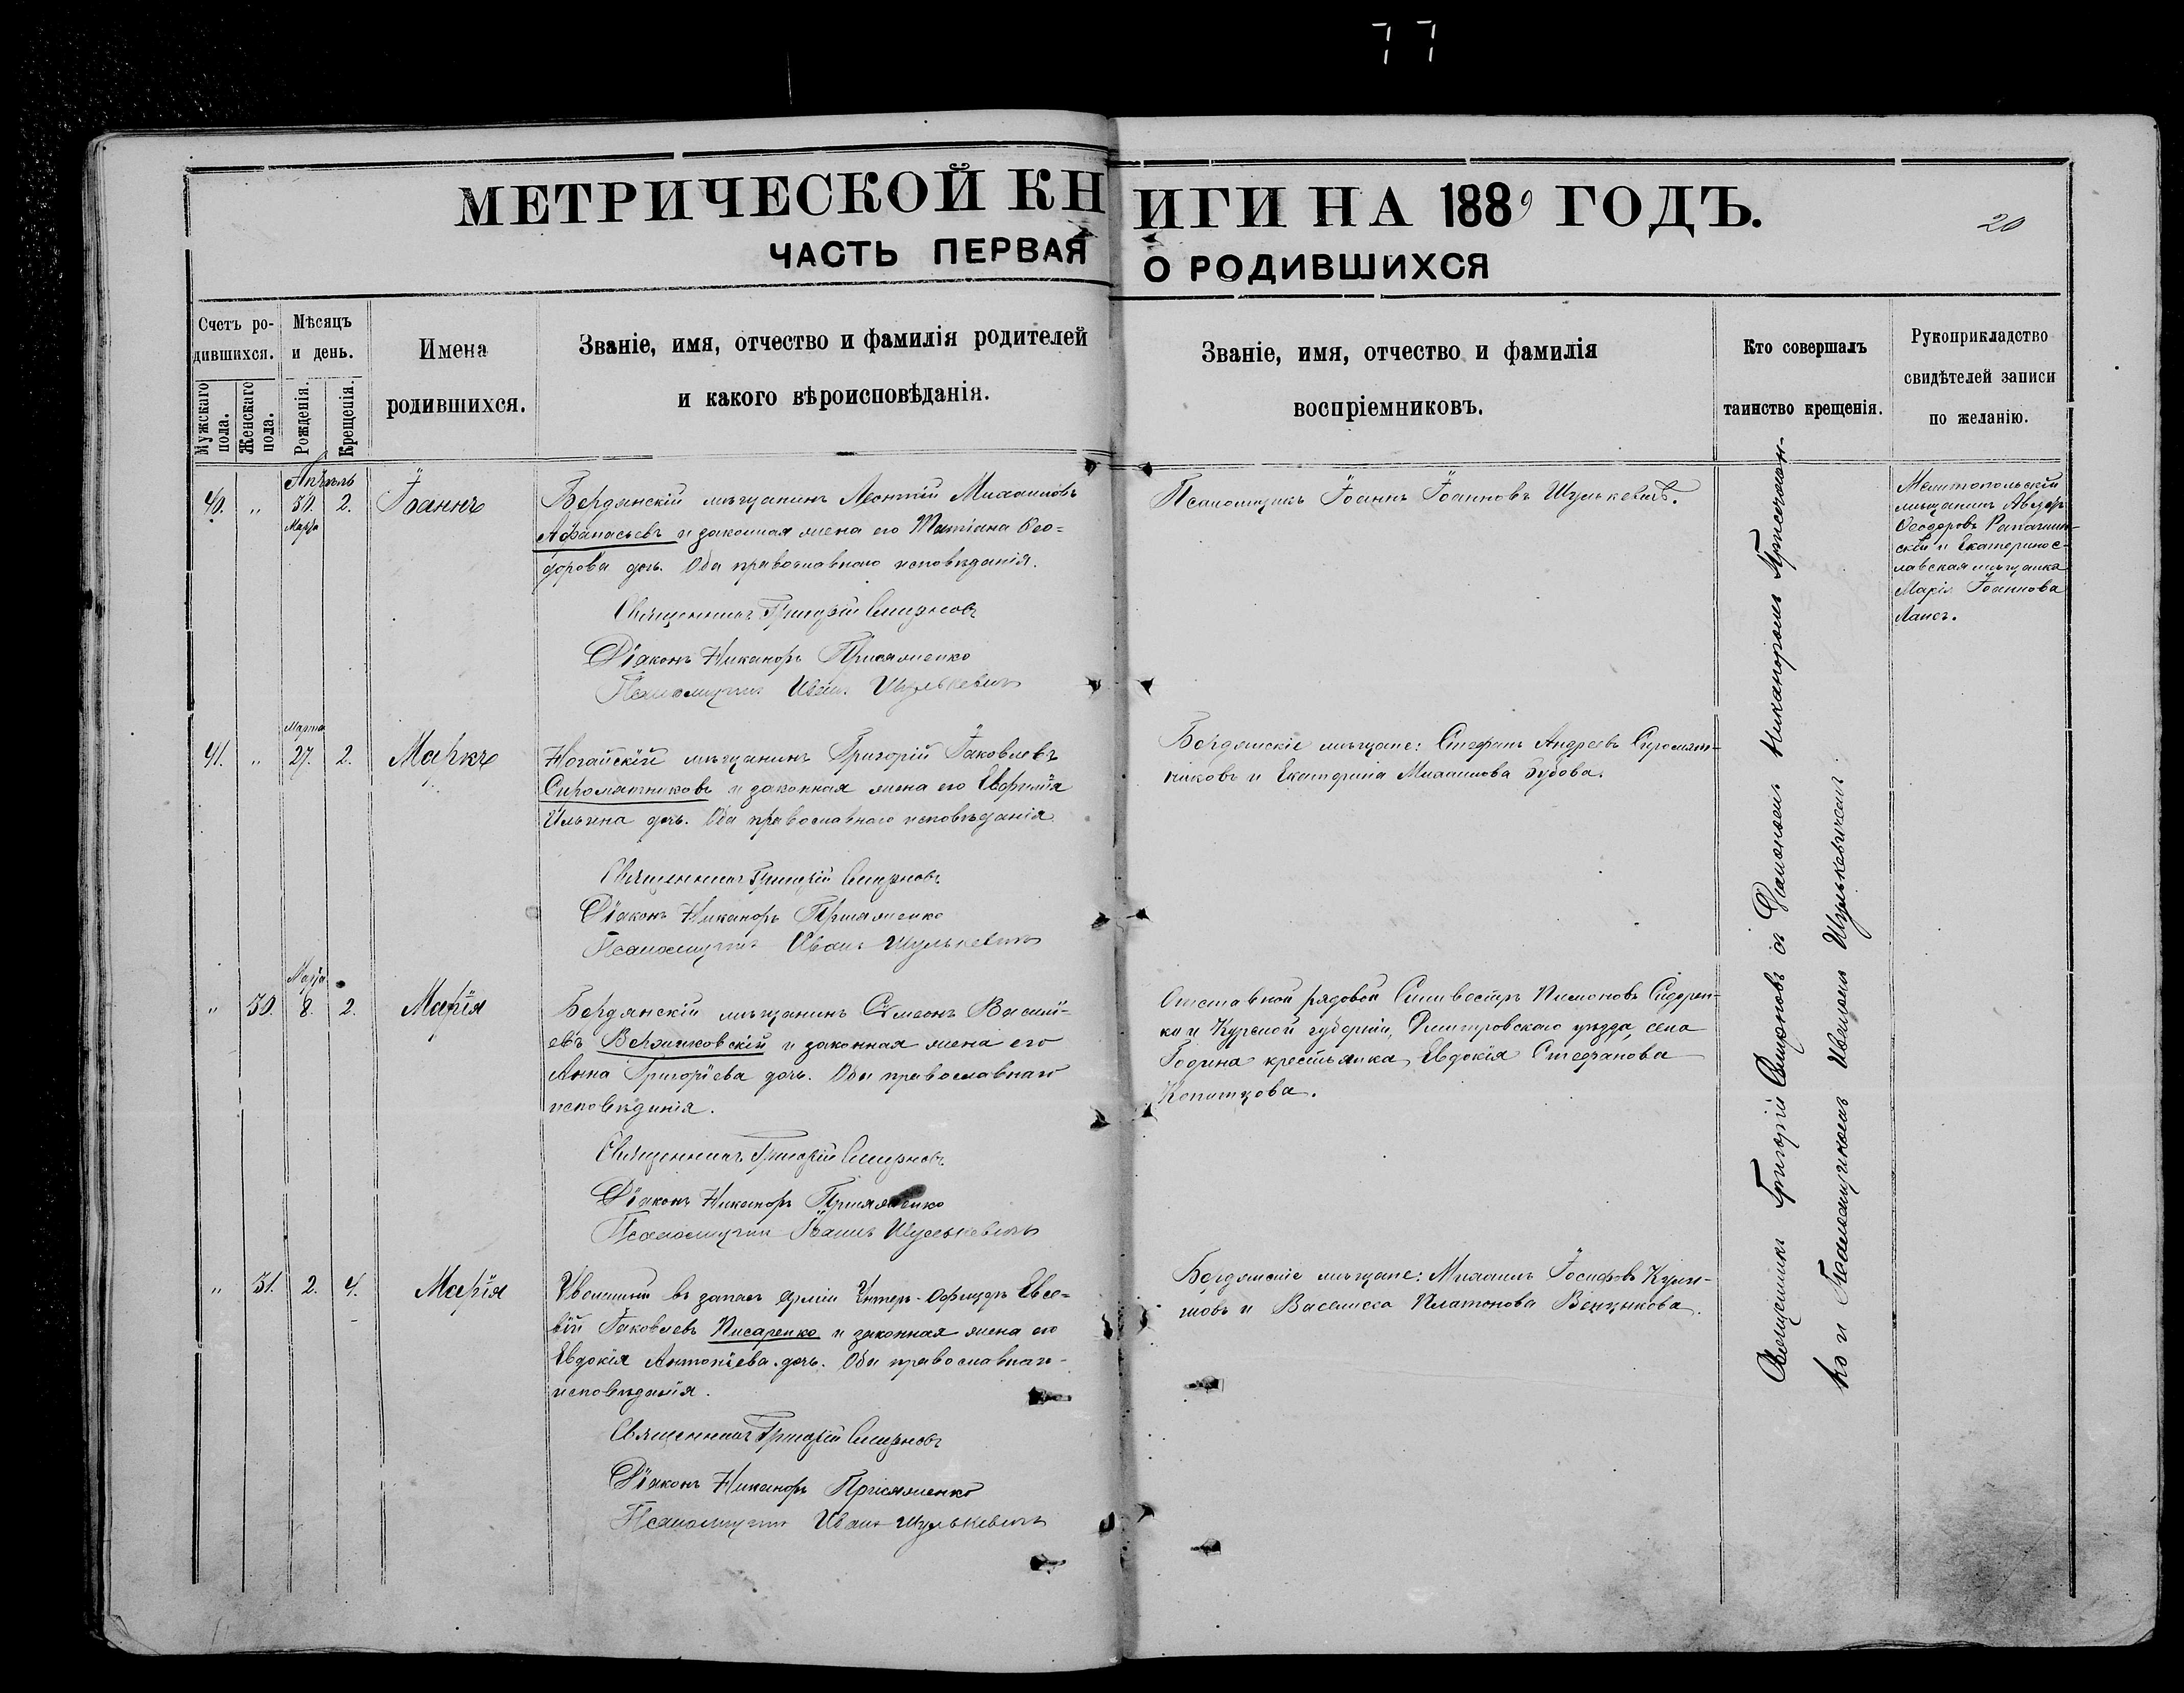 77
МЕТРИЧЕСКОЙ КНИГИ НА 1889 ГОДЪ.
20
ЧАСТЬ ПЕРВАЯ О РОДИВШИХСЯ
Счетъ ро-
дившихся.
Мужскаго пола.
Женскаго пола.
Мѣсяцъ
и день.
Рожденія.
Крещенія.
Имена
родившихся.
Званіе, имя, отчество и фамилія родителей
и какого вѣроисповѣданія.
Званіе, имя, отчество и фамилія
воспріемниковъ.
Кто совершалъ
таинство крещенія.
Рукоприкладство
свидѣтелей записи
по желанію.
Апрѣль
40. " 30. 2. Іоаннъ
Мар.
Бердянскій мѣщанинъ Леонтій Михаиловъ
Афанасьевъ и законная жена его Татіана Ѳео-
дорова дочь. Оба православнаго исповѣданія.
Священникъ Григорій Смирновъ
Діаконъ Никаноръ Присяженко
Псаломщикъ Иван. Шулькевичъ
Псаломщикъ Іоаннъ Іоанновъ Шулькевичъ.
Мелитопольскій
мѣщанинъ
Ѳеодоровъ
скій и Екатерино-
славская мѣщанка
Марія Іоаннова
Марта
41. " 27. 2. Маркъ
Ногайскій мѣщанинъ Григорій Іаковлевъ
Сыромятниковъ и законная жена его Евфимія
Ильина дочь. Оба православнаго исповѣданія
Священникъ Григорій Смирновъ
Діаконъ Никаноръ Присяженко
Псаломщикъ Иванъ Шулькевичъ
Бердянскіе мѣщане: Стефанъ Андреевъ Сыромят-
никовъ и Екатерина Михаилова Зубова.
Марта
" 50. 8. 2. Марія
Бердянскій мѣщанинъ Симеонъ Василі-
евъ и законная жена его
Анна Григоріева дочь. Оба православнаго
исповѣданія.
Священникъ Григорій Смирновъ
Діаконъ Никаноръ Присяженко
Псаломщикъ Іоаннъ Шулькевичъ
Отставной рядовой Сильвестръ Пимоновъ Сидорен-
ко и Курской губерніи, Дмитровскаго уѣзда, села
Година крестьянка Евдокія Стефанова
" 51. 2. 4. Марія
Уволенный въ запасъ арміи Унтеръ-Офицеръ Евсе-
вій Іаковлевъ Писаренко и законная жена его
Евдокія Антоніева дочь. Оба православнаго
исповѣданія.
Священникъ Григорій Смирновъ
Діаконъ Никаноръ Присяженко
Псаломщикъ Иванъ Шулькевичъ
Бердянскіе мѣщане: Михаилъ Іосифовъ
и Василиса Платонова
Священникъ Григорій Смирновъ съ Діакономъ Никаноромъ Присяжен-
ко и Псаломщикомъ Иваномъ Шулькевичемъ.